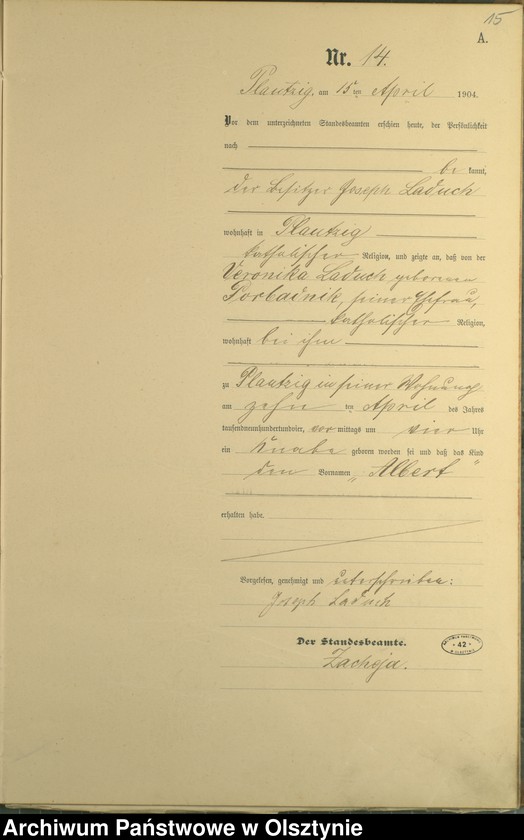 15
A.
Nr. 14.
Plautzig, am 15ten April 1904.
Vor dem unterzeichneten Standesbeamten erschien heute, der Persönlichkeit
nach
be kannt,
der Besitzer Joseph Laduch
wohnhaft in Plautzig
katholischer Religion, und zeigte an, daß von der
Veronika Laduch geborenen
Porbadnik, seiner Ehefrau,
katholischer Religion,
wohnhaft bei ihm
zu Plautzig in seiner Wohnung
am zehn ten April des Jahres
tausendneunhundertundvier, vor mittags um vier Uhr
ein Knabe geboren worden sei und daß das Kind
den Vornamen „Albert"
erhalten habe.
Vorgelesen, genehmigt und unterschrieben:
Joseph Laduch
Der Standesbeamte.
Zachoja.
42
Archiwum Państwowe w Olsztynie